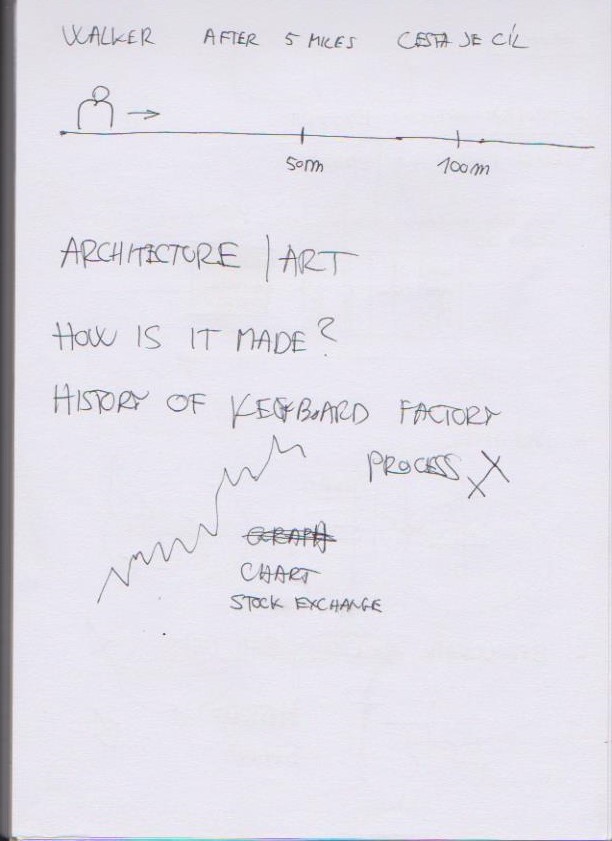 WALKER AFTER 5 MILES CESTA JE CÍL
50m 100m
ARCHITECTURE | ART
HOW IS IT MADE?
HISTORY OF KEYBOARD FACTORY
PROCESS XX
GRAPH
CHART
STOCK EXCHANGE